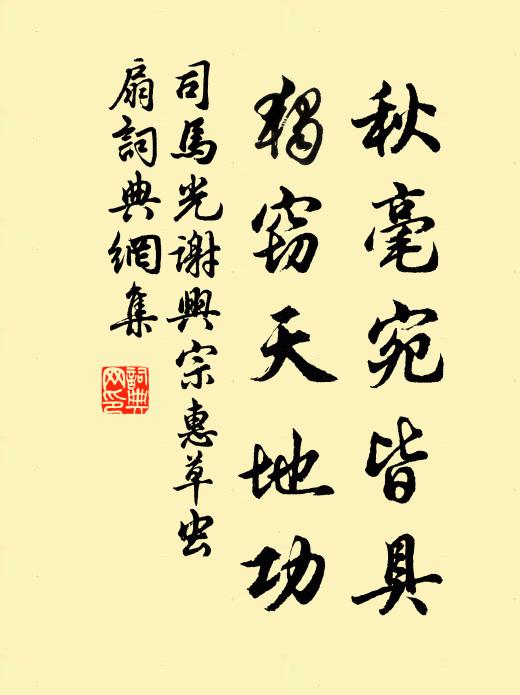 秋毫宛皆具
獨窃天地功
司馬光謝興宗惠草虫
扇詞典網集
詞典網印